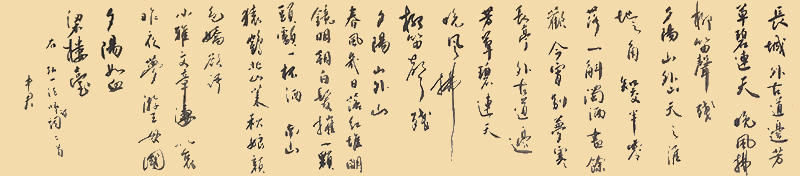 長城外古道邊芳
草碧連天晚風拂
柳笛聲殘
夕陽山外山天之涯
地之角知交半零
落一斛濁酒盡餘
歡今宵別夢寒
長亭外古道邊
芳草碧連天
晚風拂
柳笛聲殘
夕陽山外山
春風幾日落紅堆明
鏡明朝白髮摧一顆
頭顱一杯酒南山
猿鶴北山萊秋娘顏
色嬌欲語
小雅文章淒以哀
昨夜夢游王母國
夕陽如血
染樓臺
右弘一法師詞二首